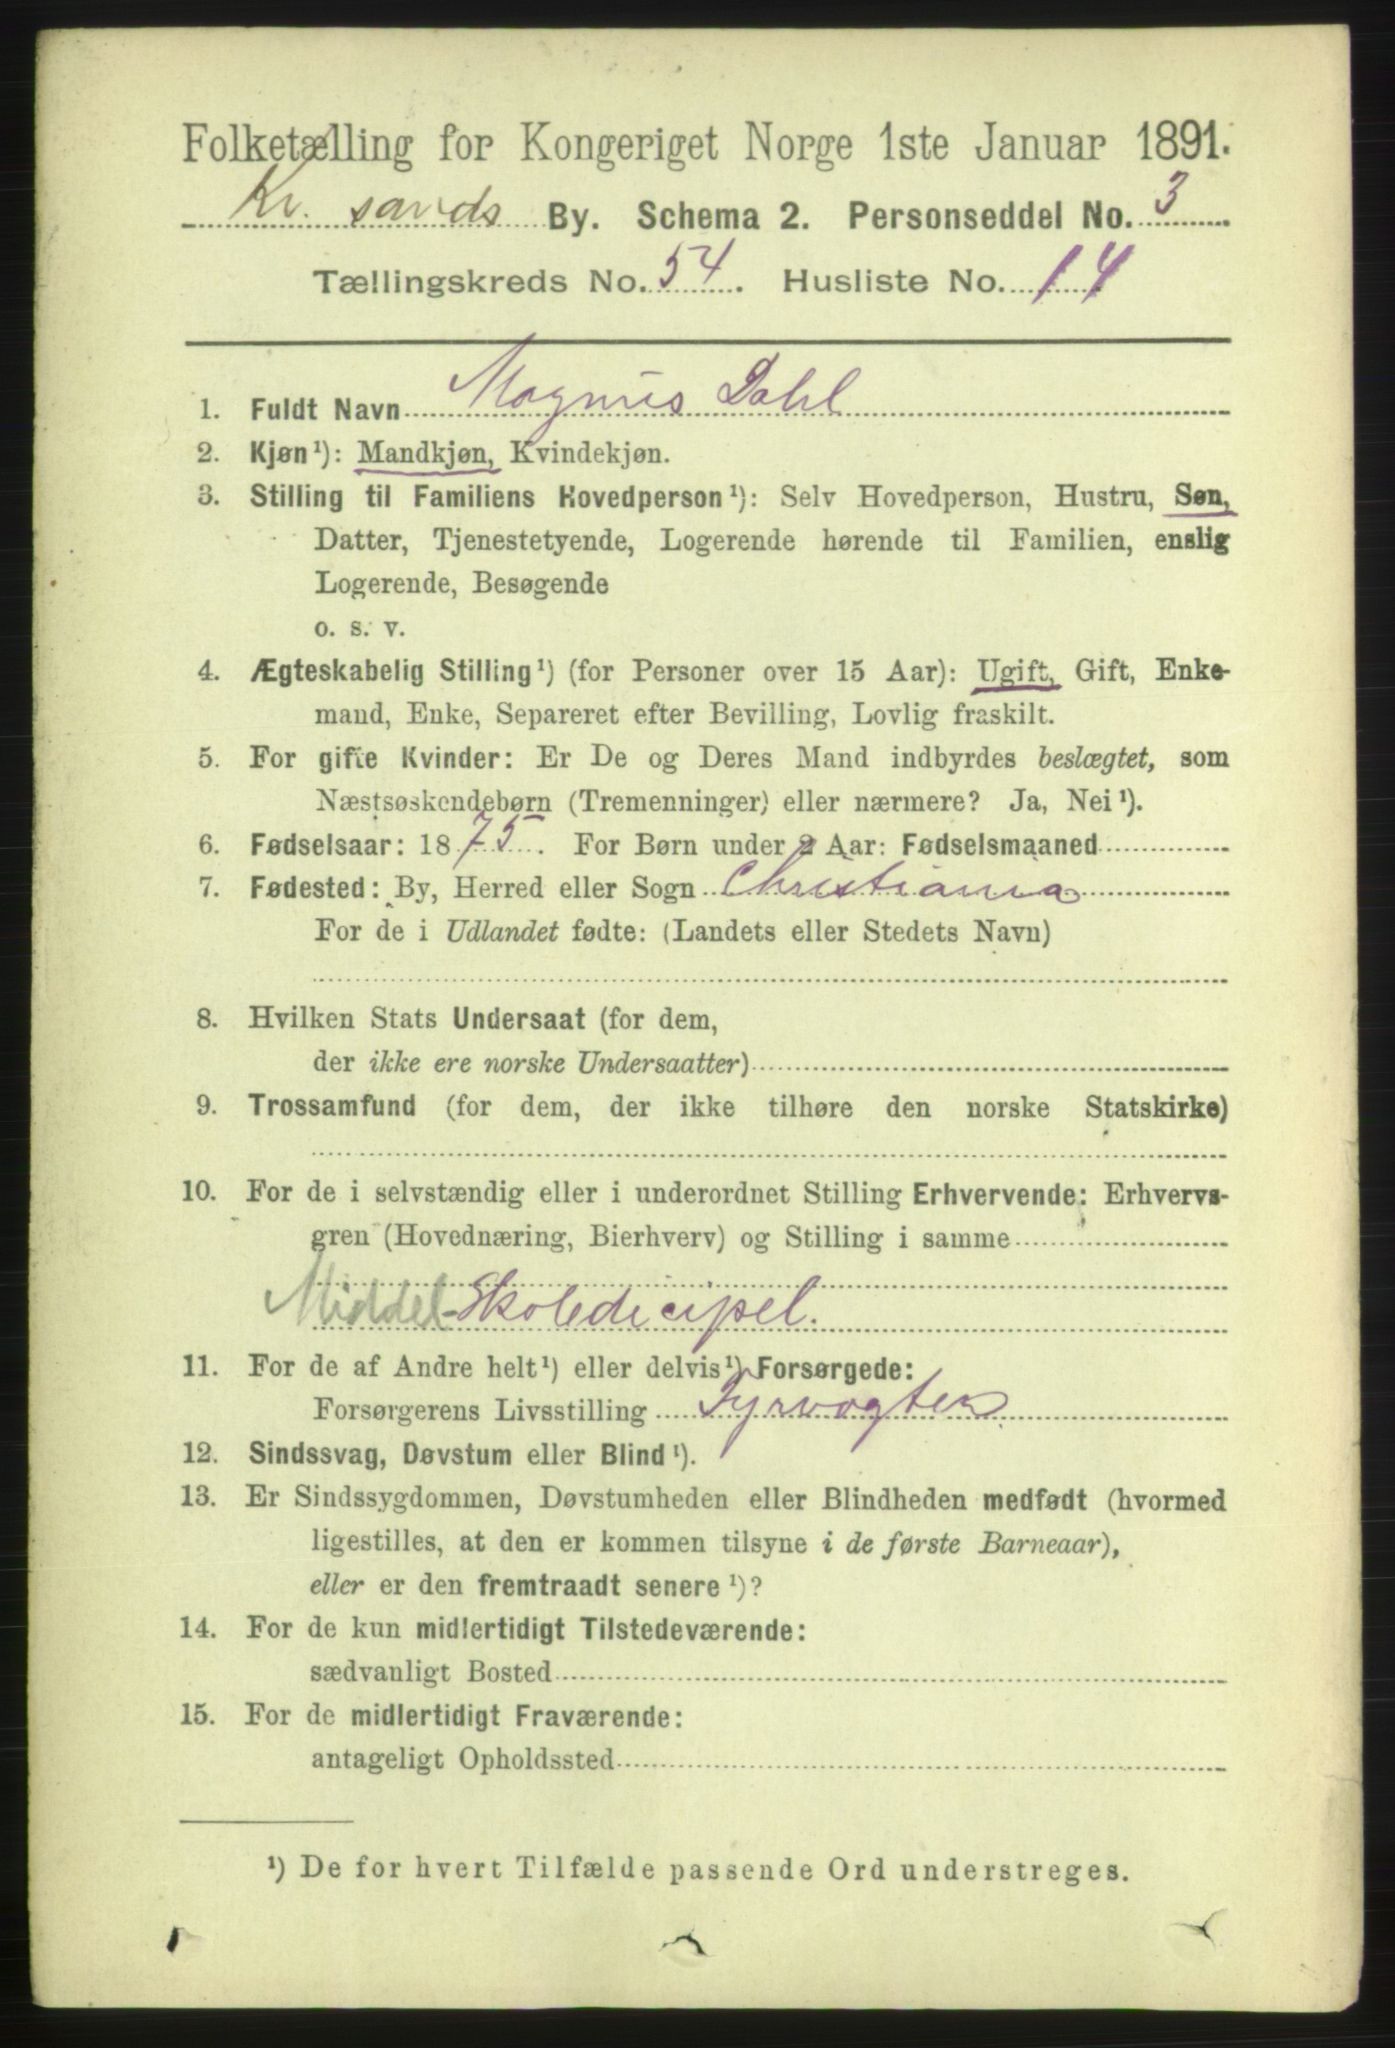 Folketælling for Kongeriget Norge 1ste Januar 1891.
Kr. sands By. Schema 2. Personseddel No. 3
Tællingskreds No. 54. Husliste No. 14
1. Fuldt Navn Magnus Dahl
2. Kjøn¹): Mandkjøn, Kvindekjøn.
3. Stilling til Familiens Hovedperson¹): Selv Hovedperson, Hustru, Søn,
Datter, Tjenestetyende, Logerende hørende til Familien, enslig
Logerende, Besøgende
o. s. v.
4. Ægteskabelig Stilling¹) (for Personer over 15 Aar): Ugift, Gift, Enke-
mand, Enke, Separeret efter Bevilling, Lovlig fraskilt.
5. For gifte Kvinder: Er De og Deres Mand indbyrdes beslægtet, som
Næstsøskendebørn (Tremenninger) eller nærmere? Ja, Nei¹).
6. Fødselsaar: 1875. For Børn under 2 Aar: Fødselsmaaned
7. Fødested: By, Herred eller Sogn Christiania
For de i Udlandet fødte: (Landets eller Stedets Navn)
8. Hvilken Stats Undersaat (for dem,
der ikke ere norske Undersaatter)
9. Trossamfund (for dem, der ikke tilhøre den norske Statskirke)
10. For de i selvstændig eller i underordnet Stilling Erhvervende: Erhvervs-
gren (Hovednæring, Bierhverv) og Stilling i samme
Middel-Skoledicipel.
11. For de af Andre helt¹) eller delvis¹) Forsørgede:
Forsørgerens Livsstilling Fyrvogter
12. Sindssvag, Døvstum eller Blind¹).
13. Er Sindssygdommen, Døvstumheden eller Blindheden medfødt (hvormed
ligestilles, at den er kommen tilsyne i de første Barneaar),
eller er den fremtraadt senere¹)?
14. For de kun midlertidigt Tilstedeværende:
sædvanligt Bosted
15. For de midlertidigt Fraværende:
antageligt Opholdssted
¹) De for hvert Tilfælde passende Ord understreges.